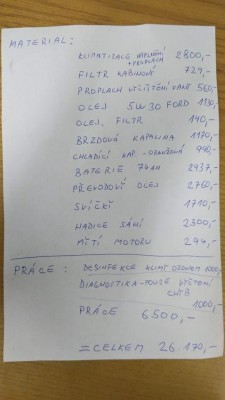 MATERIAL:
KLIMATIZACE NAPLNĚNÍ + PROPLACH 2800,-
FILTR KABINOVÝ 729,-
PROPLACH VYČIŠTĚNÍ VANY 560,-
OLEJ 5W30 FORD 1130,-
OLEJ. FILTR 140,-
BRZDOVÁ KAPALINA 1170,-
CHLADÍCÍ KAP. - ORANŽOVÁ 940,-
BATERIE 74AH 2937,-
PŘEVODOVÝ OLEJ 2760,-
SVÍČKY 1710,-
HADICE SÁNÍ 2300,-
MYTÍ MOTORU 294,-
PRÁCE: DESINFEKCE KLIMY OZONEM 1000,-
DIAGNOSTIKA - POUZE VYČTENÍ CHYB 1000,-
PRÁCE 6500,-
= CELKEM 26 170,-